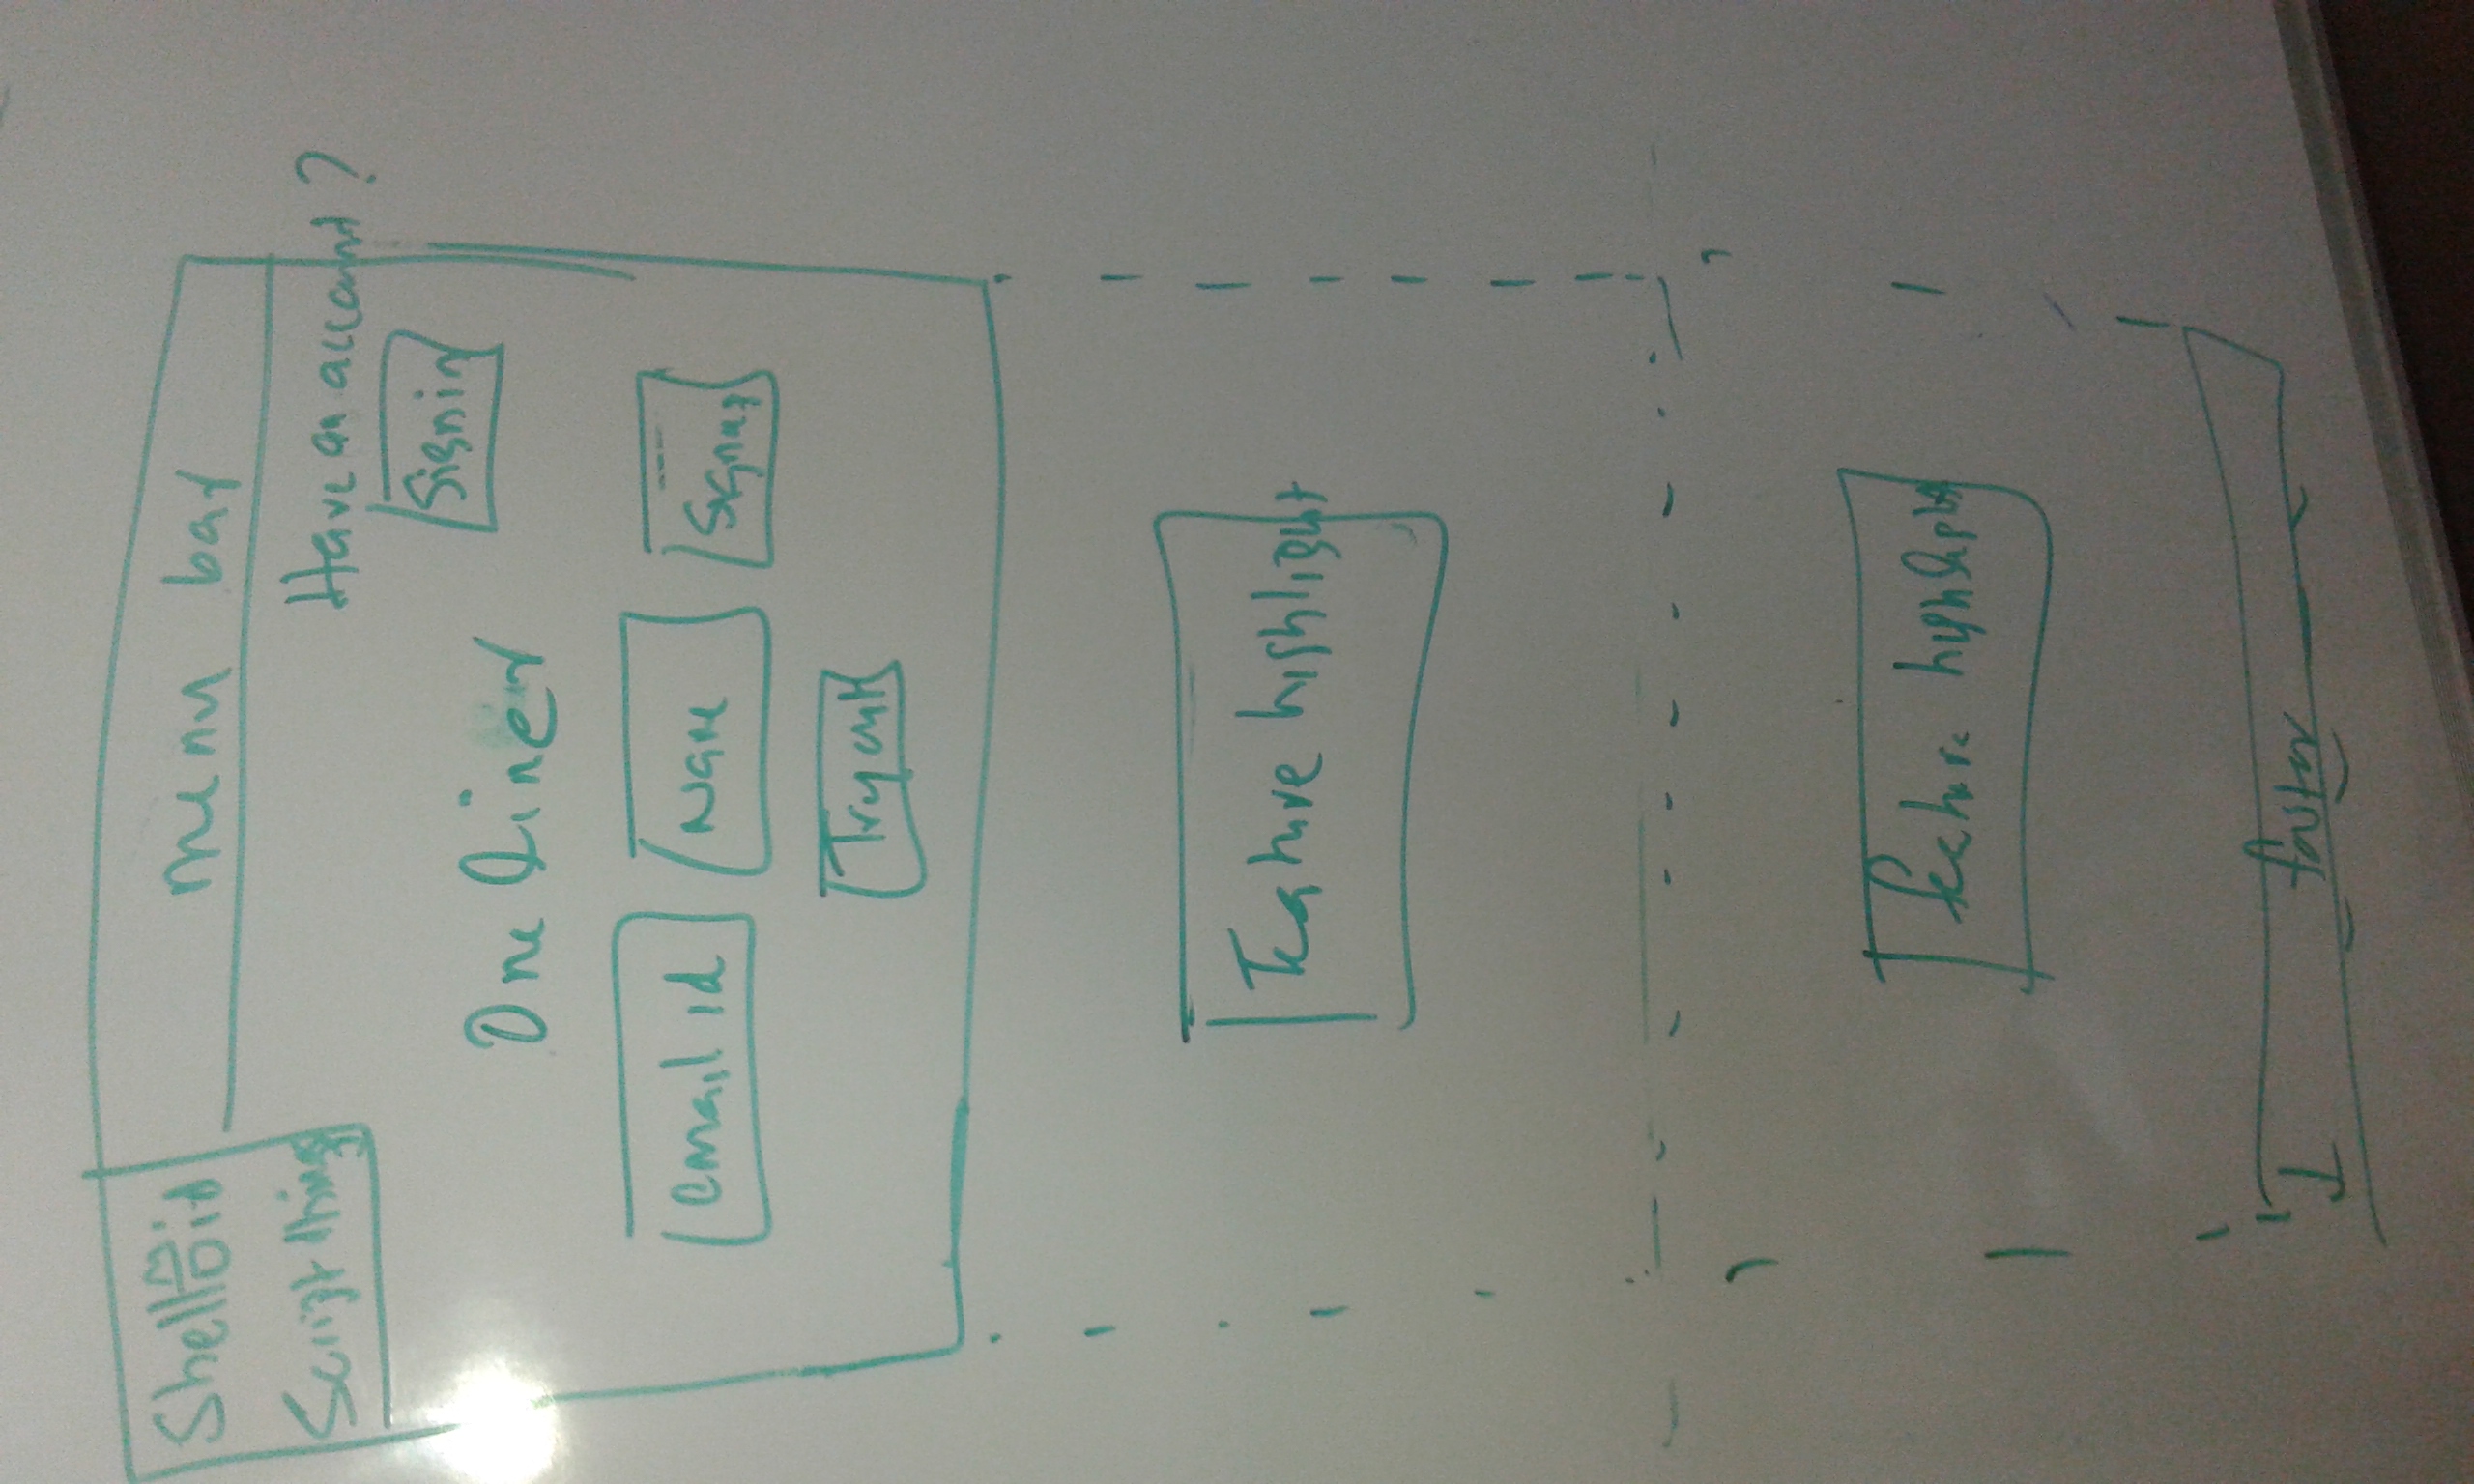 Shelloid
menu bar
Script things
Have an account?
Signin
One liner
email id
Name
Signup
Try out
Feature highlight
feature highlight
footer